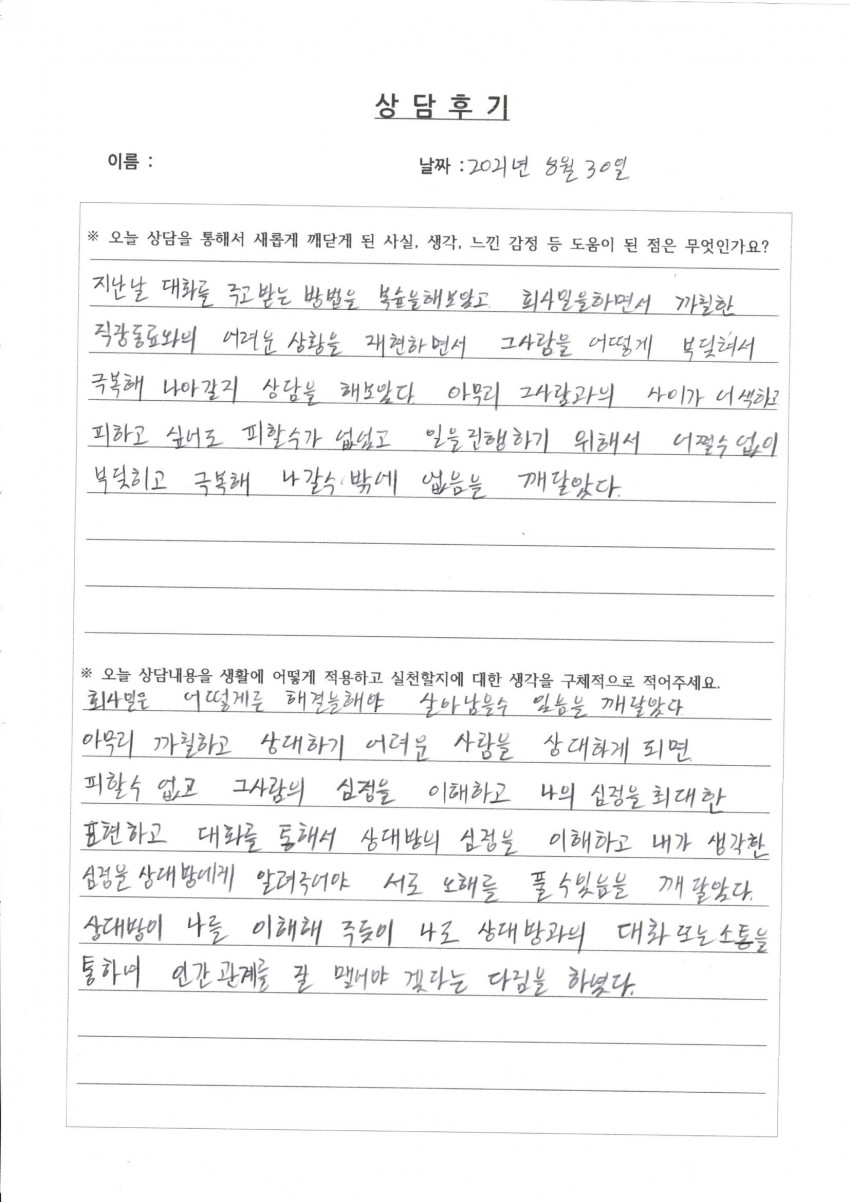 상 담 후 기
이름 :
날짜 : 2021년 8월 30일
※ 오늘 상담을 통해서 새롭게 깨닫게 된 사실, 생각, 느낀 감정 등 도움이 된 점은 무엇인가요?
지난날 대화를 주고받는 방법을 복습을해보았고 회사일을하면서 까칠한
직장동료와의 어려운 상황을 재현하면서 그사람을 어떻게 부딪혀서
극복해 나아갈지 상담을 해보았다. 아무리 그사람과의 사이가 어색하고
피하고 싶어도 피할수가 없었고 일을진행하기 위해서 어쩔수없이
부딪히고 극복해 나갈수 밖에 없음을 깨달았다.
※ 오늘 상담내용을 생활에 어떻게 적용하고 실천할지에 대한 생각을 구체적으로 적어주세요.
회사일은 어떻게든 해결을해야 살아남을수 있음을 깨달았다
아무리 까칠하고 상대하기 어려운 사람을 상대하게 되면
피할수 없고 그사람의 심정을 이해하고 나의 심정을 최대한
표현하고 대화를 통해서 상대방의 심정을 이해하고 내가 생각한
심정을 상대방에게 알려주어야 서로 오해를 풀수있음을 깨달았다.
상대방이 나를 이해해 주듯이 나도 상대방과의 대화 또는 소통을
통하여 인간관계를 잘 맺어야 겠다는 다짐을 하였다.